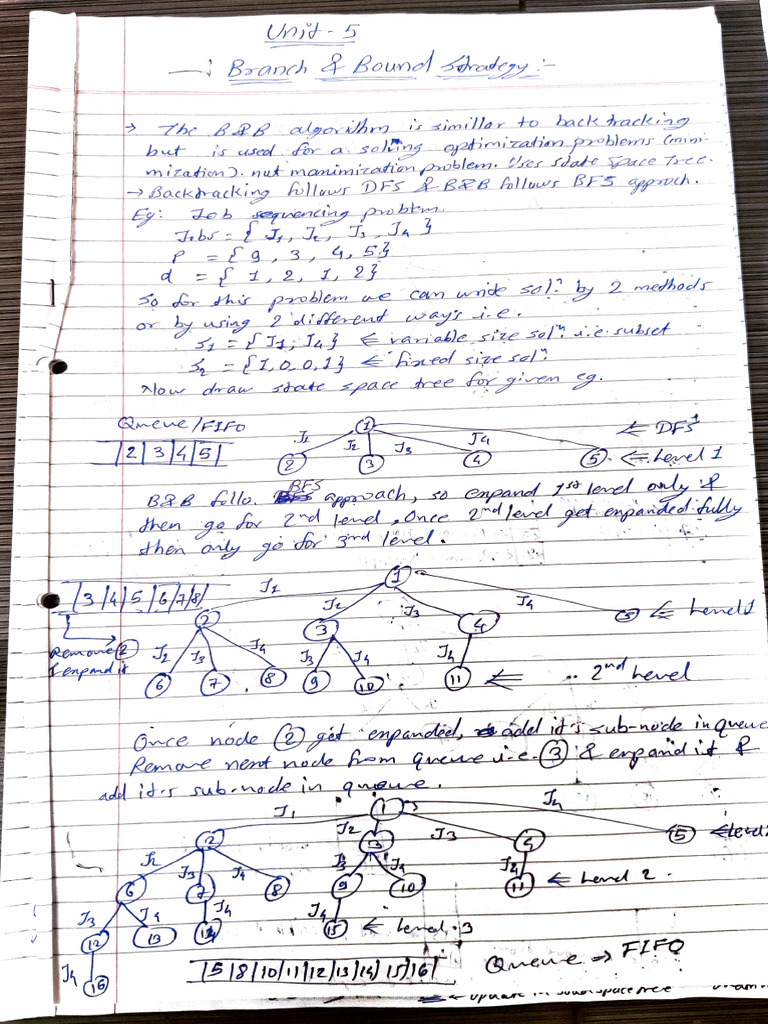 Unit - 5
Branch & Bound Strategy :-
→ The B&B algorithm is simillar to backtracking
but is used for a solving optimization problems (mini-
mization). not manimization problem. Uses state space Tree.
→ Backtracking follows DFS & B&B follows BFS approch.
Eg: Job sequencing problem.
Jobs = { J1, J2, J3, J4 }
P = { 9, 3, 4, 5 }
d = { 1, 2, 1, 2 }
So for this problem we can write solⁿ by 2 methods
or by using 2 different ways i.e.
S1 = { J1, J4 } ⇐ variable size solⁿ i.e. subset
S2 = { 1, 0, 0, 1 } ⇐ fixed size solⁿ
Now draw state space tree for given eg.
Queue/FIFO
1 ⇐ DFS
J1 J2 J3 J4
|2|3|4|5| 2 3 4 5 ⇐ Level 1
BFS
B&B follo. approach, so expand 1st level only &
then go for 2nd level, Once 2nd level get expanded fully
then only go for 3rd level.
1
J1 J2 J3 J4
|3|4|5|6|7|8|
2 3 4 5 ⇐ Level 1
Remove 2
& expand it
J2 J3 J4 J3 J4 J4
6 7 8 9 10 11 ⇐ 2nd Level
Once node 2 get expanded, add it's sub-node in queue
Remove next node from queue i.e. 3 & expand it &
add it's sub-node in queue.
1
J1 J2 J3 J4
2 3 4 5 ⇐ Level
J2 J3 J4 J3 J4 J4
6 7 8 9 10 11 ⇐ Level 2.
J3 J4 J4 J4
12 13 14 15 ⇐ Level 3
J4
16
|5|8|10|11|12|13|14|15|16| Queue → FIFO